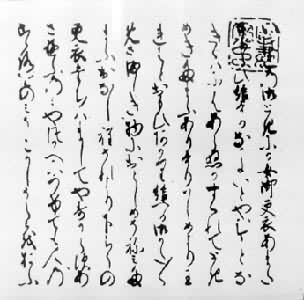 いつれの御時にか女御更衣あまた
さふらひ給けるなかにいとやむことな
きゝはにはあらぬかすくれてとき
めき給ありけりはしめより我
はと思ひあかり給へる御かた〱
めさましき物におとしめそねみ給
おなしほとそれより下らうの
更衣たちはましてやすからす
宮つかへにつけても人の
心をのみうこかし